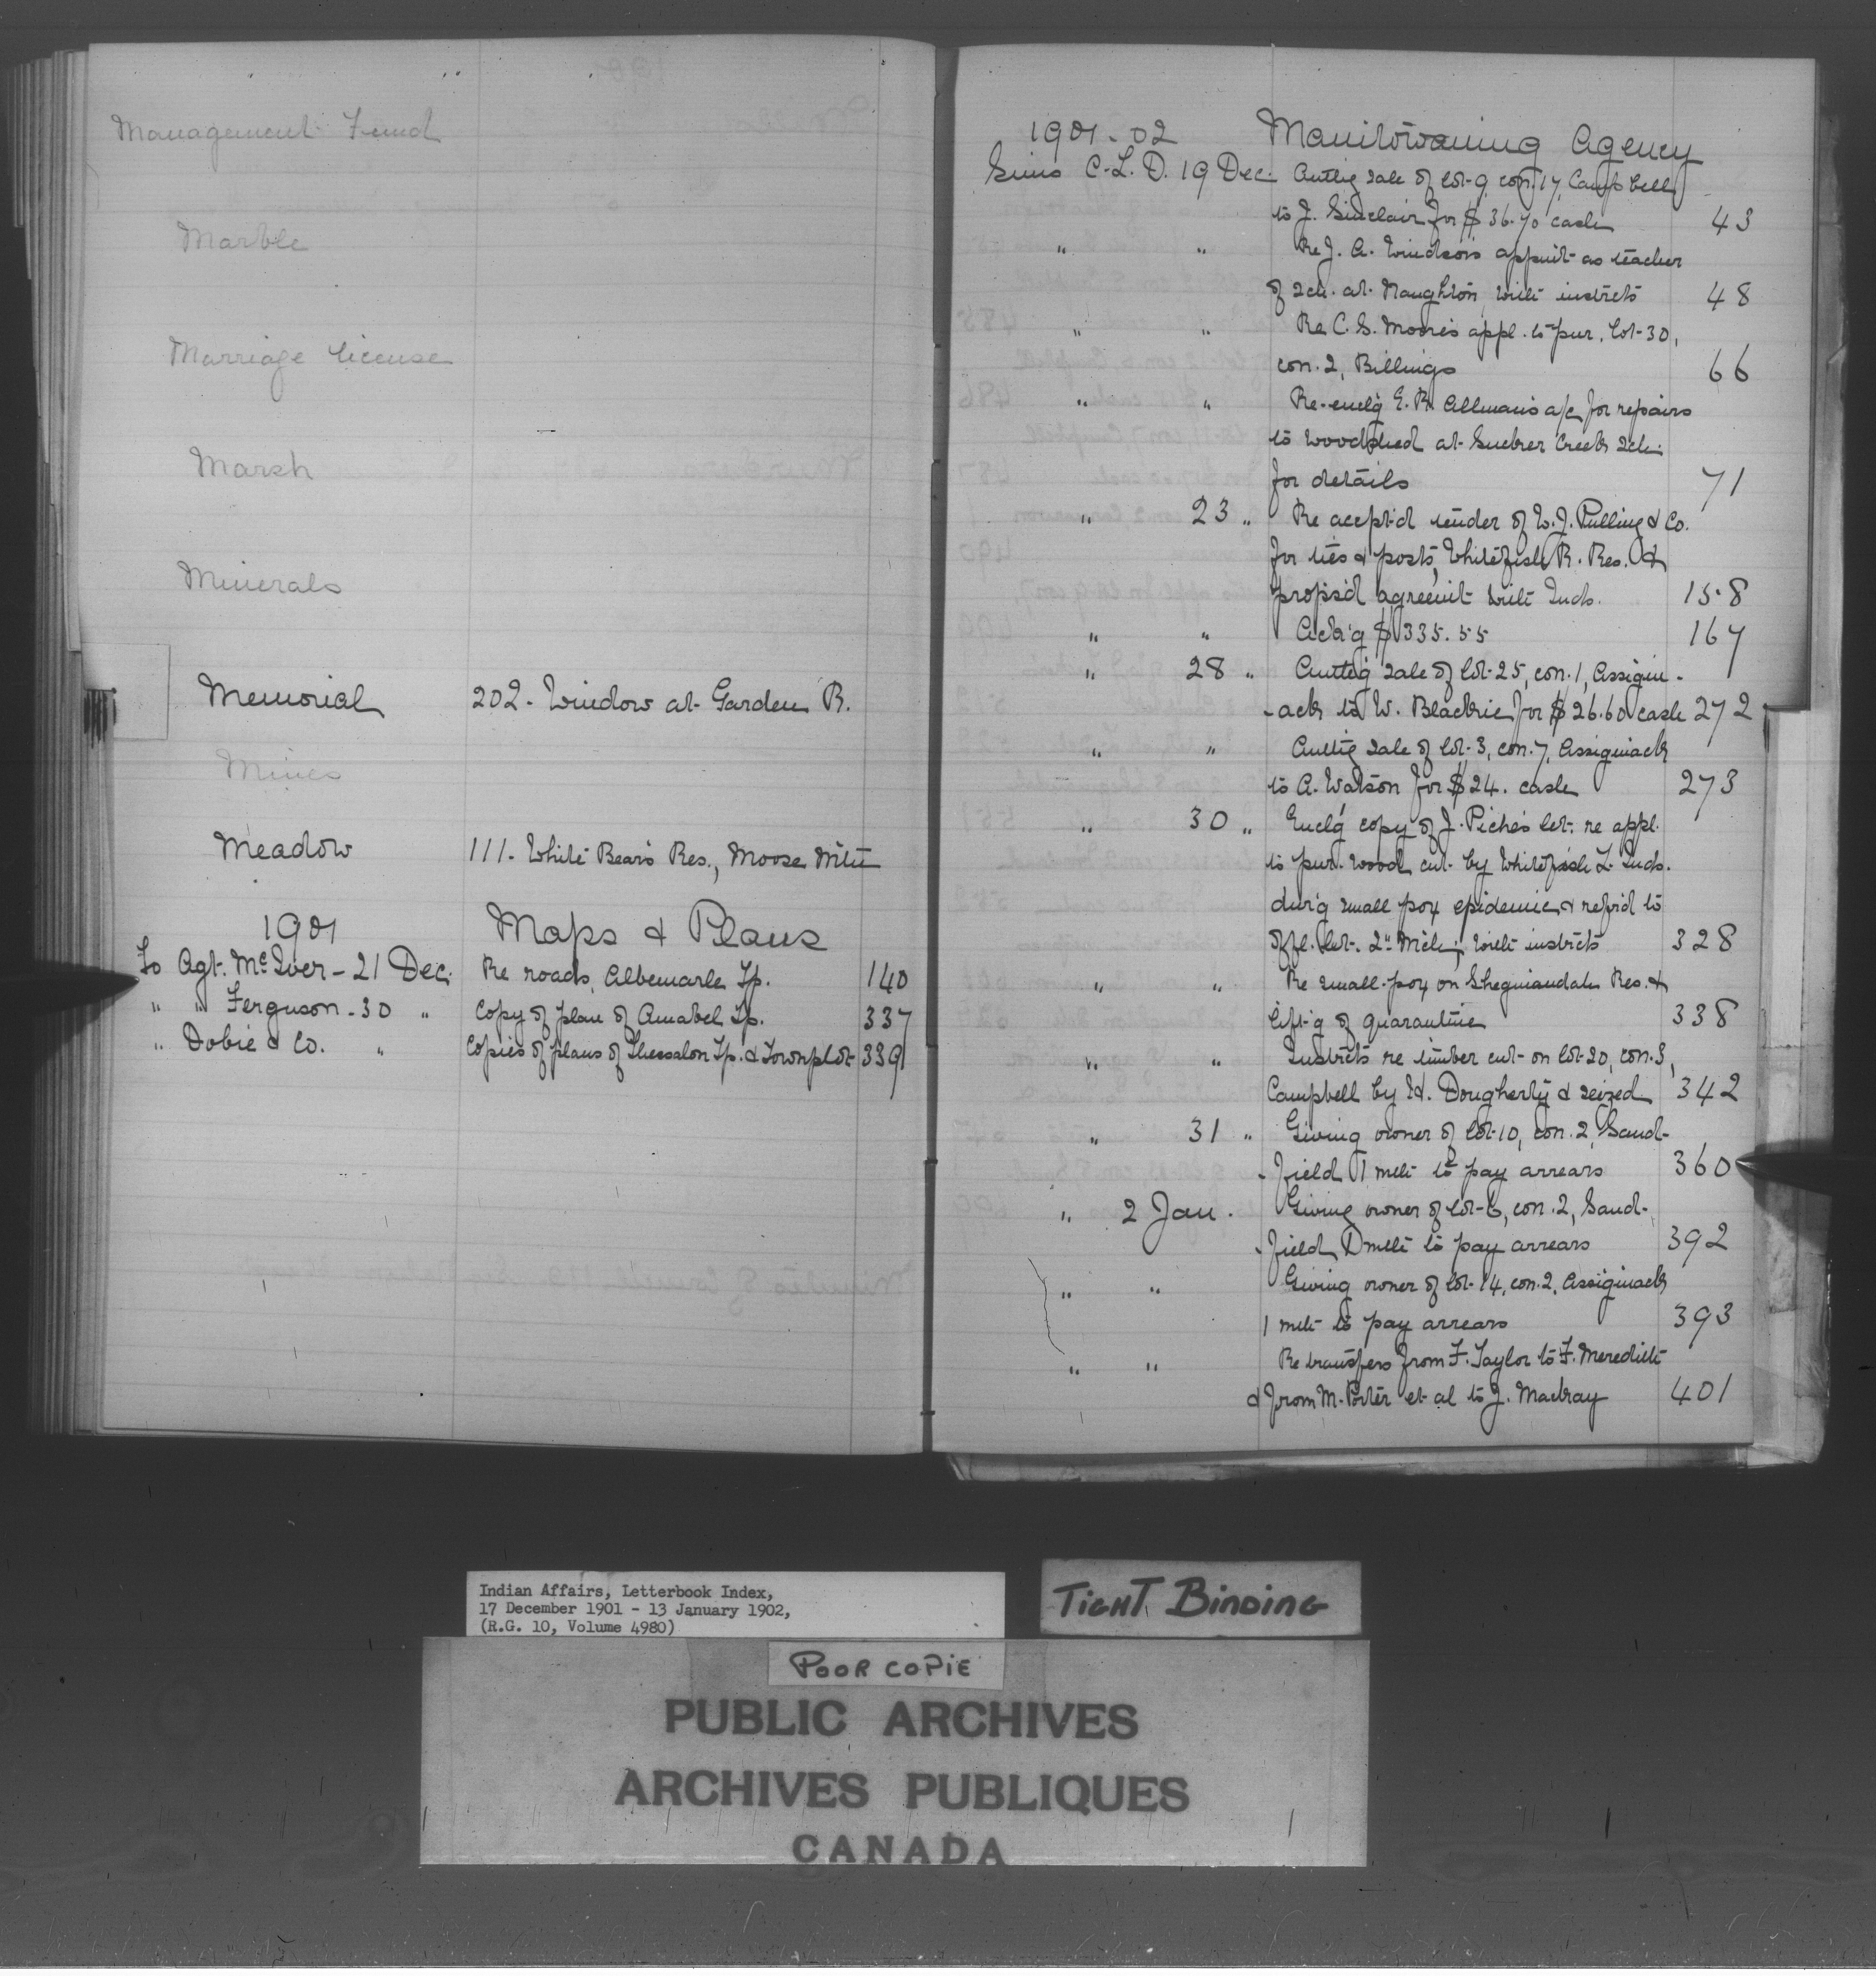 Management Fund
Marble
Marriage license
Marsh
Minerals
Memorial 202- Window at Garden R.
Mines
Meadow 111- White Bear's Res., Moose Mtn
1901 Maps & Plans
To Agt. McIver - 21 Dec. Re roads, Albemarle Tp. 140
" " Ferguson - 30 " Copy of plan of Amabel Tp. 337
" Dobie & Co. " Copies of plans of Thessalon Tp. & Townplot 339
1901-02 Manitowaning Agency
Sims C.L.D. 19 Dec. Authg sale of lot 9, con. 17, Campbell
to J. Sinclair for $36.70 cash 43
" " Re J. A. Windson's appmt as teacher
of sch. at Naughton, with instrcts 48
" " Re C. S. Moore's appl. to pur. lot 30,
con. 2, Billings 66
" " Re-enclg E. R. Allman's a/c for repairs
to woodshed at Sucker Creek sch.
for details 71
" 23 " Re accept'd tender of W. J. Pulling & Co.
for ties & posts, Whitefish R. Res. &
props'd agreemt with Inds. 158
" " Ack'g $335.55 167
" 28 " Authg sale of lot 25, con. 1, Assigin-
-ack to W. Blackrie for $26.60 cash 272
" " Authg sale of lot 3, con. 7, Assiginack
to A. Watson for $24. cash 273
" 30 " Enclg copy of J. Piche's let. re appl.
to pur. wood cut by Whitefish L. Inds.
dur'g small pox epidemic & refer'd to
offl. let. 2nd Mch; with instrcts 328
" " Re small-pox on Sheguiandah Res. &
lift'g of quarantine 338
" " Instrcts re timber cut on lot 20, con. 3,
Campbell by H. Dougherty & seized 342
" 31 " Giving owner of lot 10, con. 2, Sand-
-field 1 mth to pay arrears 360
" 2 Jan. Giving owner of lot 6, con. 2, Sand-
-field 1 mth to pay arrears 392
" " Giving owner of lot 14, con. 2, Assiginack
1 mth to pay arrears 393
" " Re transfers from F. Taylor to F. Meredith
& from M. Porter et al to J. Mackay 401
Indian Affairs, Letterbook Index,
17 December 1901 - 13 January 1902,
(R.G. 10, Volume 4980)
TIGHT BINDING
POOR COPIE
PUBLIC ARCHIVES
ARCHIVES PUBLIQUES
CANADA